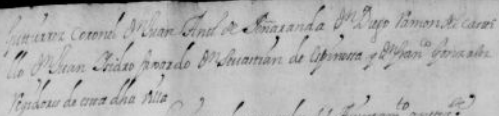 Gutierrez Coronel Dn Juan Antt de Peñaranda Dn Diego Ramon del Carri
llo Dn Juan Isidro faxardo Dn Sevastian de Espinosa y Dn Franco Gonzalez
Regidores de esta dha Villa